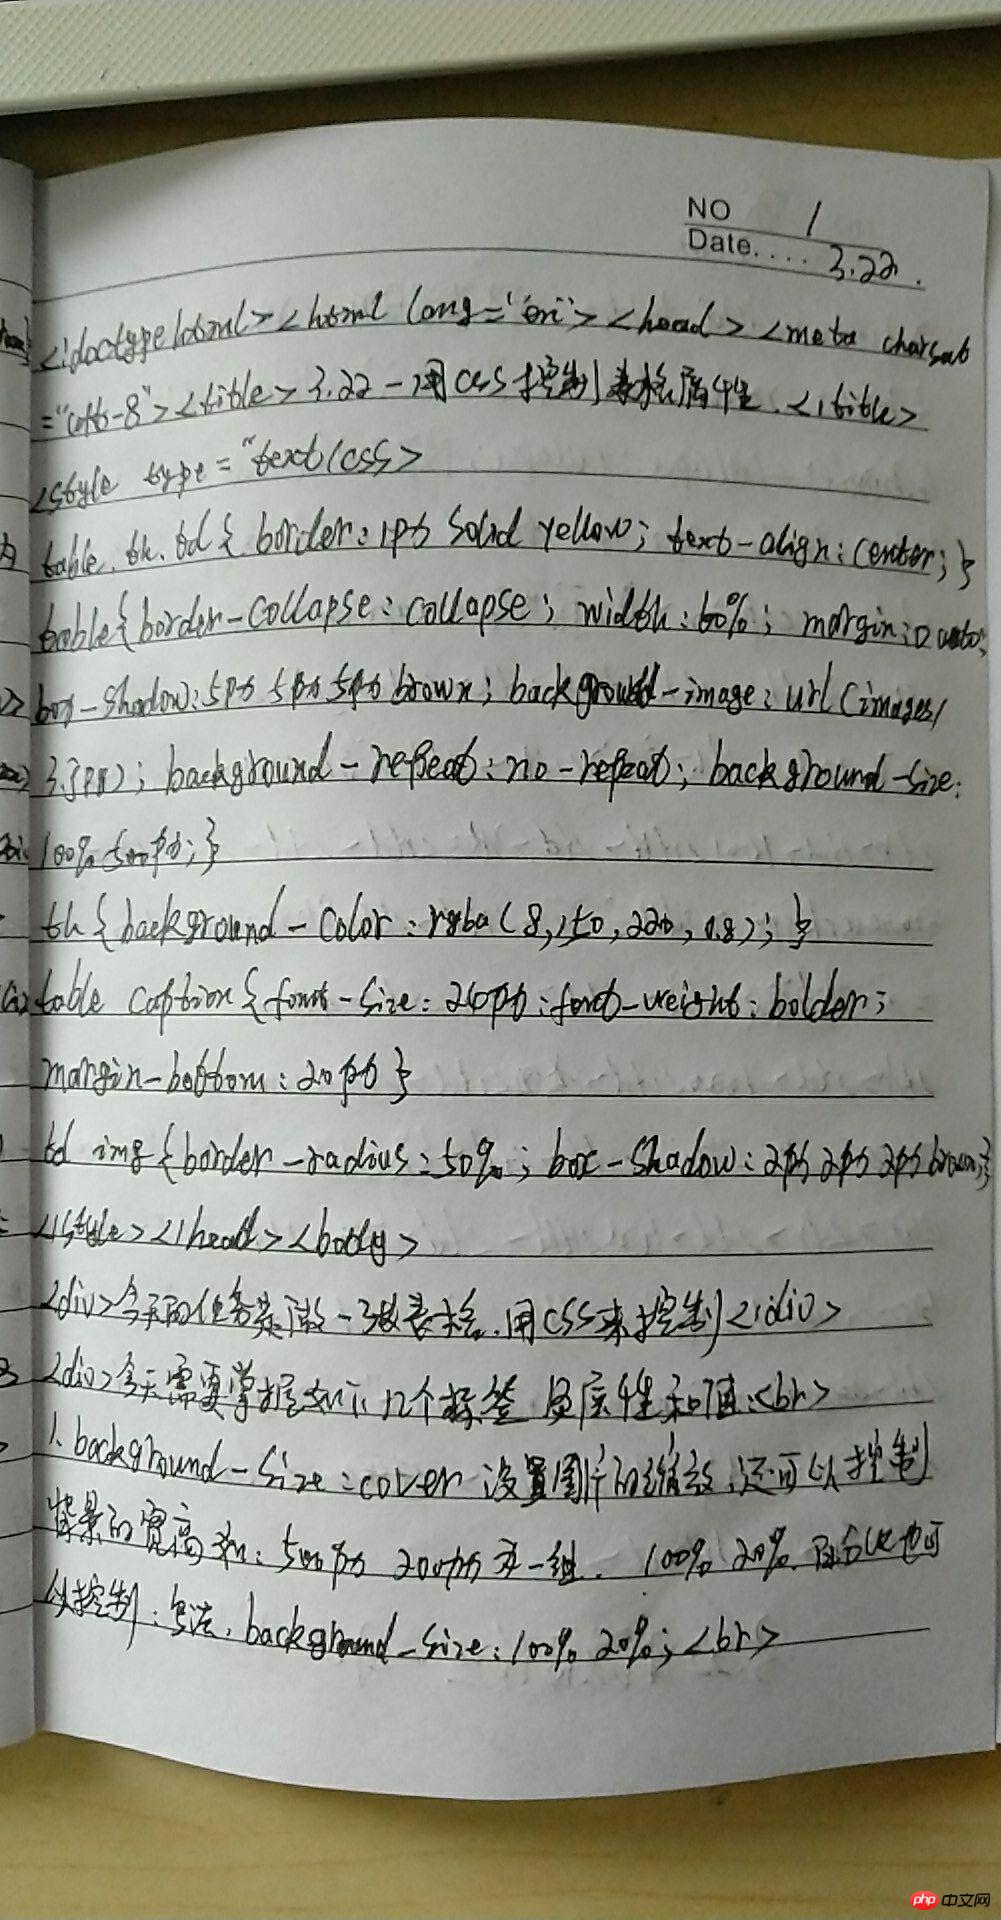 NO 1
Date.... 3.22.
<!doctype html><html lang="en"><head><meta charset
="utf-8"><title>3.22-用CSS控制表格属性.</title>
<style type="text/css>
table, th, td{border:1px solid yellow; text-align:center;}
table{border-collapse:collapse; width:60%; margin:0 auto;
box-shadow:5px 5px 5px brown; background-image:url(images/
3.jpg); background-repeat:no-repeat; background-size:
100% 500px;}
th{background-color:rgba(8,150,220,0.8);}
table caption{font-size:26px;font-weight:bolder;
margin-bottom:20px}
td img{border-radius:50%; box-shadow:2px 2px 2px brown;}
</style></head><body>
<div>今天的任务是做一张表格.用CSS来控制</div>
<div>今天需要掌握如下几个标签 属性和值:<br>
1、background-size:cover 设置图片的缩放,还可以控制
背景的宽高 如:500px 200px 为一组. 100% 20% 百分比也可
以控制:写法,background-size:100% 20%;<br>
php 中文网